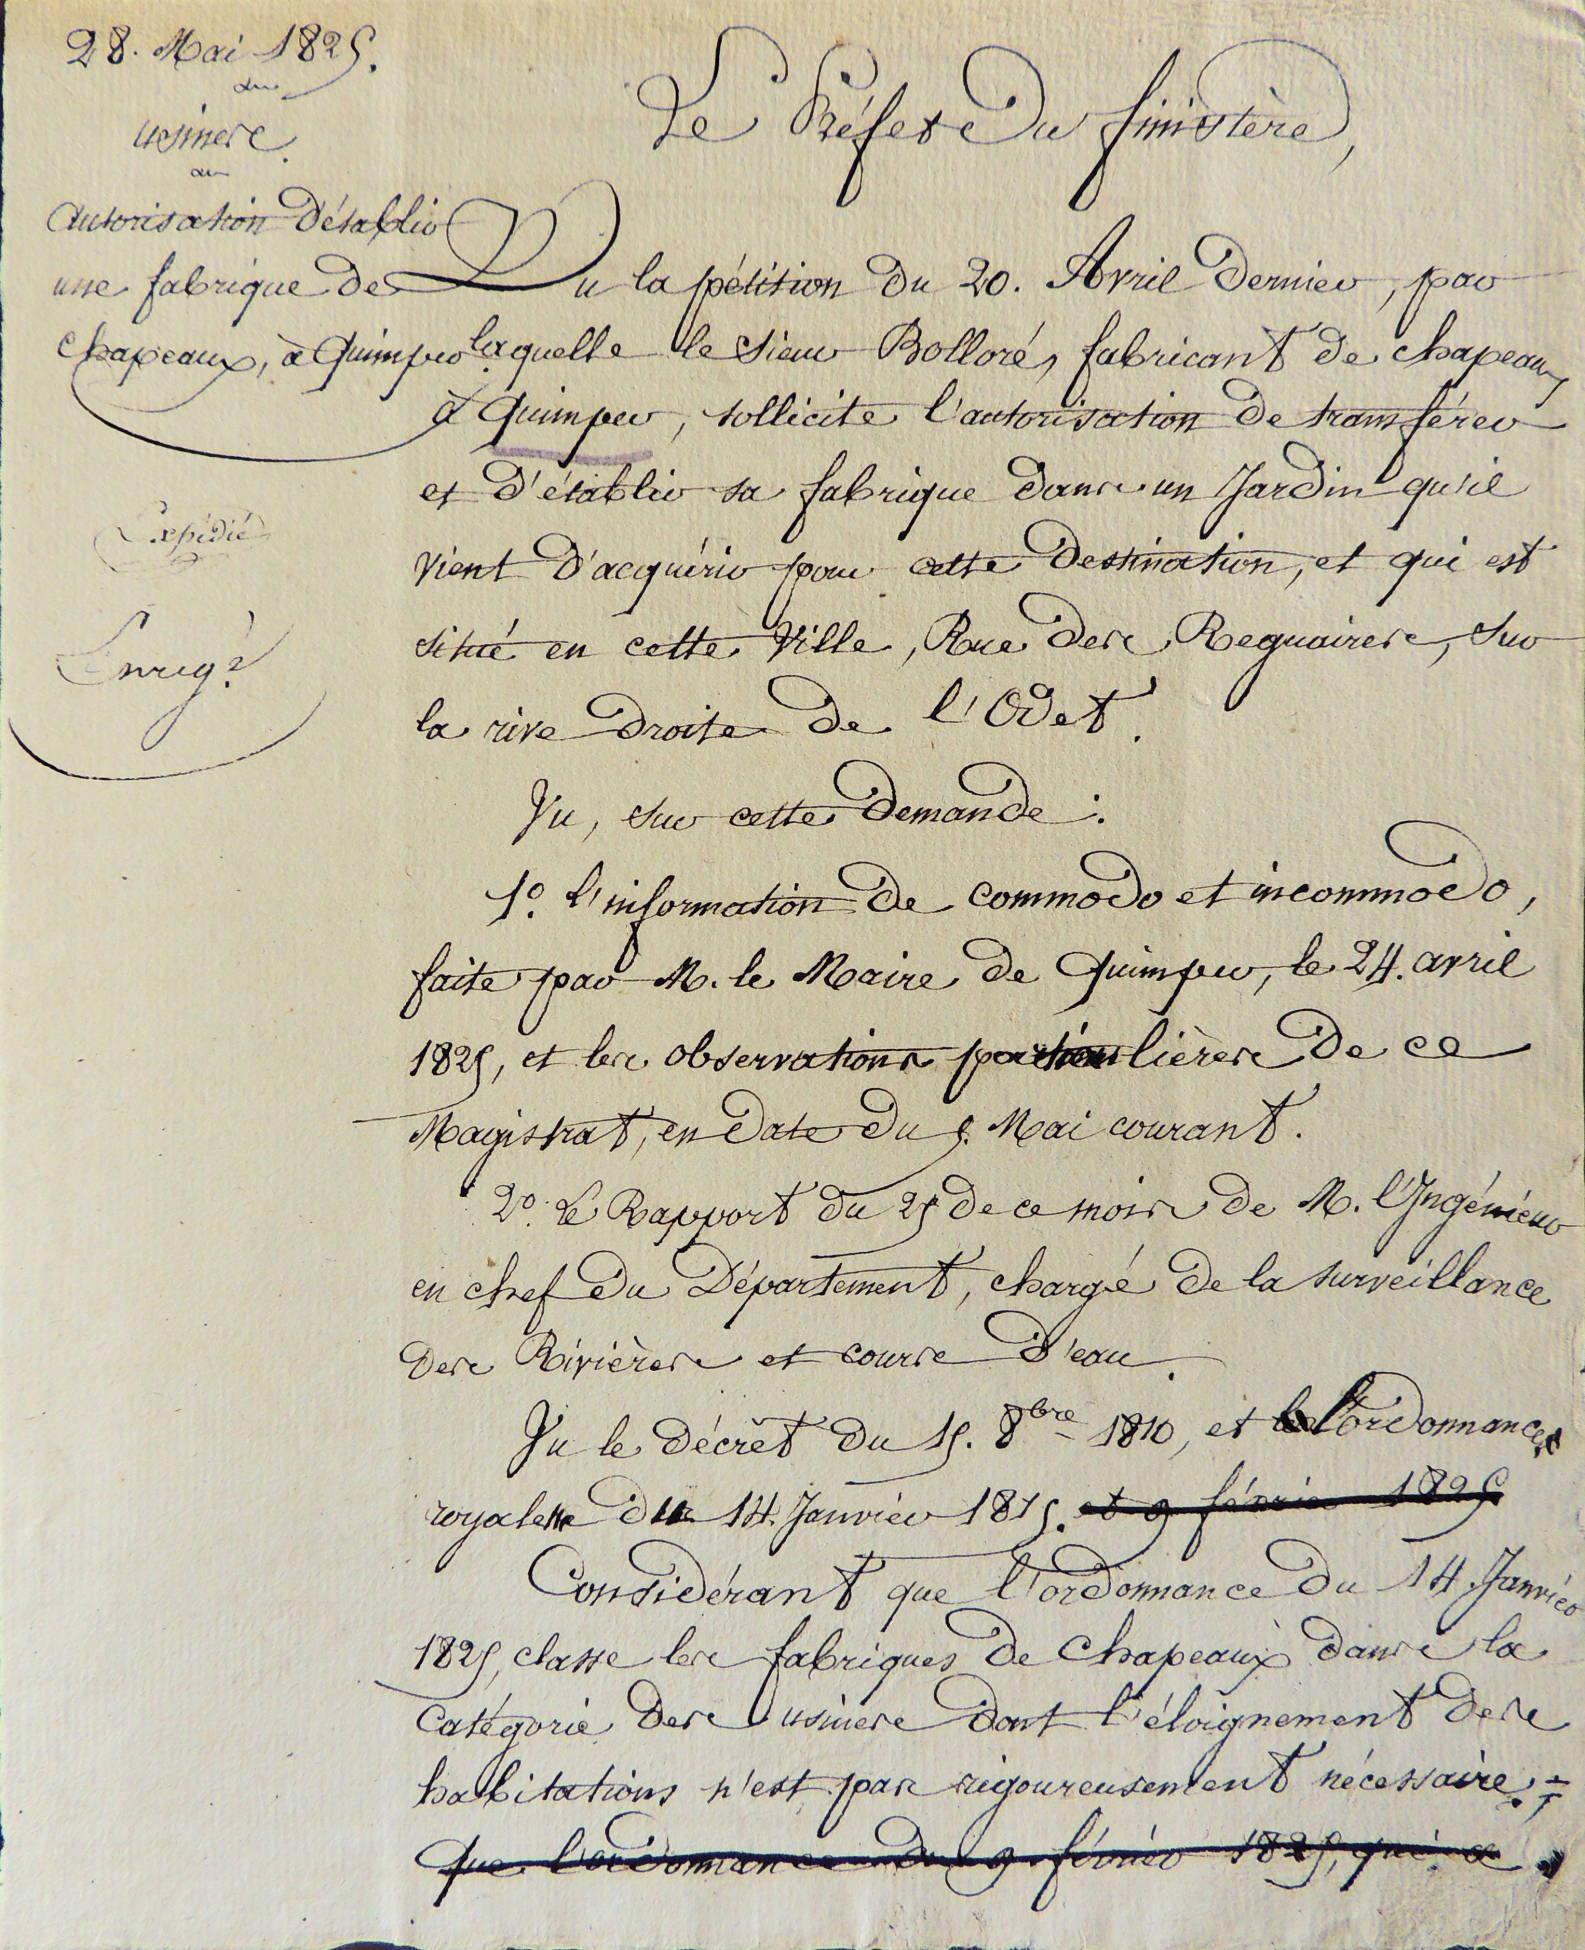 28. Mai 1825.
usines.
Autorisation d'établir
une fabrique de
chapeaux, à Quimper.
Expédié
Enreg.é
Le Préfet du Finistère,
Vu la pétition du 20. Avril dernier, par
laquelle le Sieur Bolloré, fabricant de chapeaux
à Quimper, sollicite l'autorisation de transférer
et d'établir sa fabrique dans un Jardin qu'il
vient d'acquérir pour cette destination, et qui est
situé en cette Ville, Rue des Reguaires, sur
la rive droite de l'Odet.
Vu, sur cette demande :
1.° l'information de commodo et incommodo,
faite par M. le Maire de Quimper, le 24. avril
1825, et les observations particulières de ce
Magistrat, en date du 5. Mai courant.
2.° Le Rapport du 25 de ce mois de M. l'Ingénieur
en chef du Département, chargé de la surveillance
des Rivières et cours d'eau.
Vu le décret du 15. 8bre 1810, et l'ordonnance
royale du 14. Janvier 1815. et 9 février 1825
Considérant que l'ordonnance du 14. Janvier
1825, classe les fabriques de Chapeaux dans la
Catégorie des usines dont l'éloignement des
habitations n'est pas rigoureusement nécessaire ;
que l'ordonnance du 9. février 1825, qui a